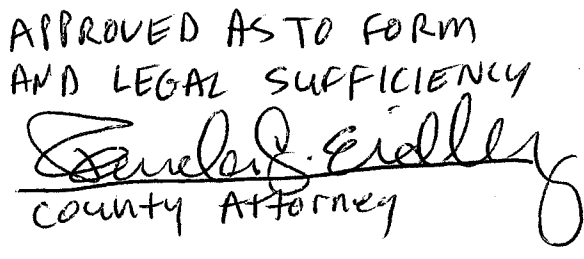 APPROVED AS TO FORM
AND LEGAL SUFFICIENCY
County Attorney